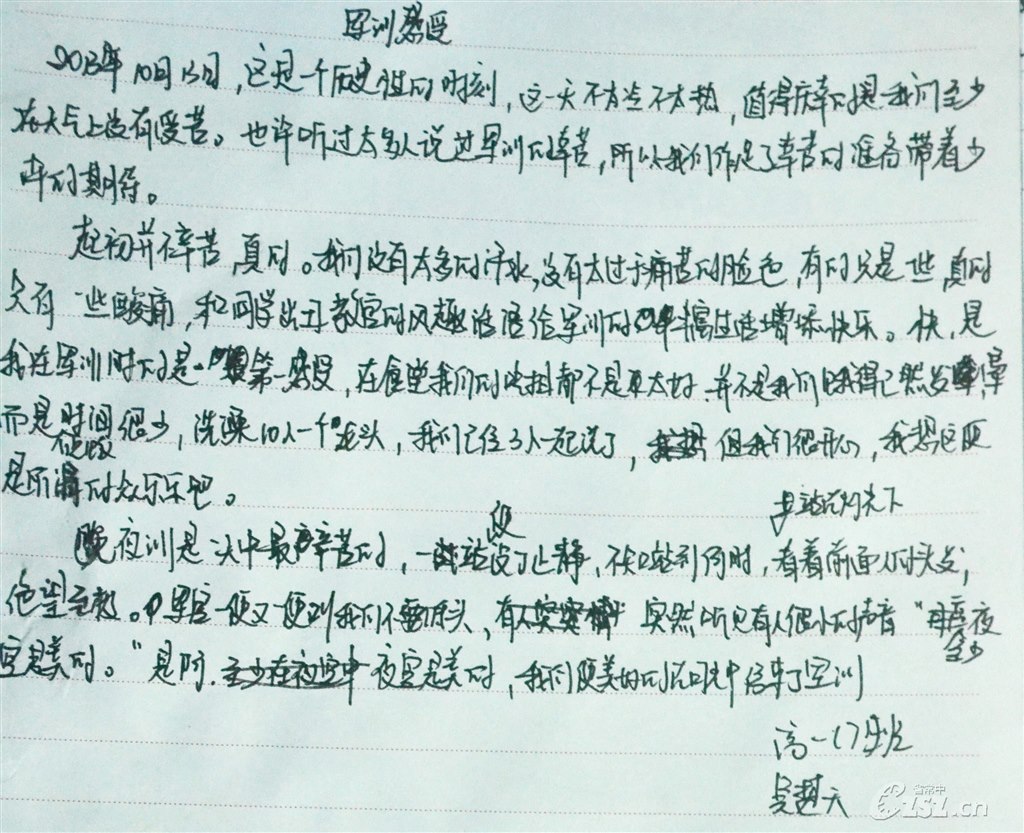 军训感受
2013年10月13日,这是一个历史性的时刻,这一天不太冷不太热,值得庆幸的是我们至少
在天气上没有受苦。也许听过太多人说过军训的辛苦,所以我们作足了辛苦的准备带着少
许的期待。
起初并不辛苦,真的。我们没有太多的汗水,没有太过于痛苦的脸色,有的只是一些,真的
只有一些酸痛,和同学出丑教官的风趣话语给军训的生活增添快乐。快,是
我在军训时的是第一感受,在食堂我们的吃相都不是太好,并不是我们饿得已然发晕,
而是时间很少,洗澡10人一个龙头,我们已经3人一起洗了,但我们很开心,我想这便
吃饭
是所谓的众乐乐吧。
但 且站在灯光下
夜训是一天中最辛苦的,一站没了止静,不知站到何时,看着前面人的头发,
绝望至极。军官一便又一便叫我们不要低头,突然听见有人很小的声音"夜
至少
空是美的。"是阿.夜空是美的,我们便美好的沉默中结束了军训
高一17班
吴越天
省常中
CZSZ.cn